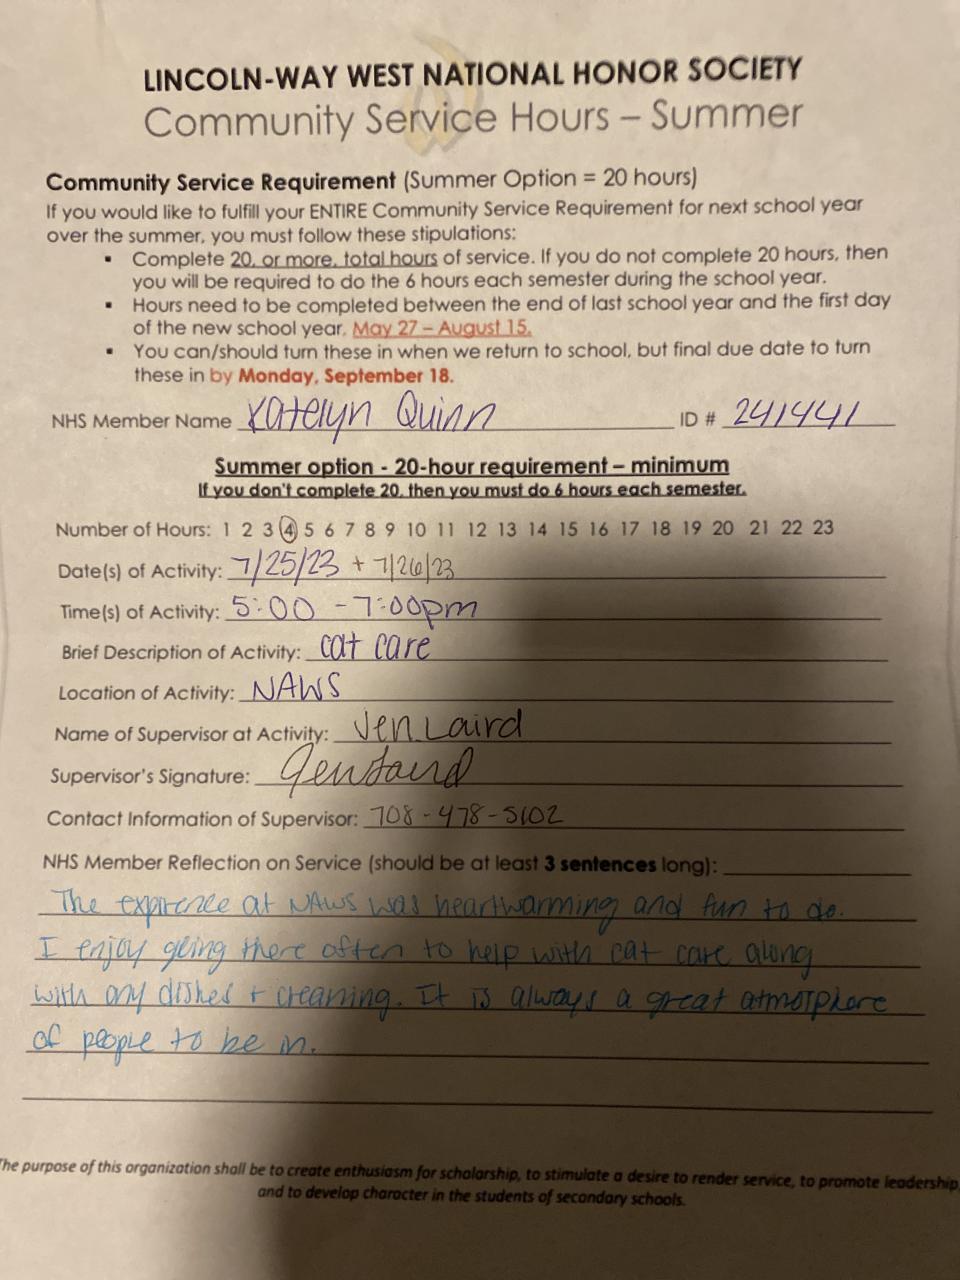 LINCOLN-WAY WEST NATIONAL HONOR SOCIETY
Community Service Hours – Summer
Community Service Requirement (Summer Option = 20 hours)
If you would like to fulfill your ENTIRE Community Service Requirement for next school year
over the summer, you must follow these stipulations:
▪ Complete 20, or more, total hours of service. If you do not complete 20 hours, then
you will be required to do the 6 hours each semester during the school year.
▪ Hours need to be completed between the end of last school year and the first day
of the new school year. May 27 – August 15.
▪ You can/should turn these in when we return to school, but final due date to turn
these in by Monday, September 18.
NHS Member Name Katelyn Quinn ID # 241441
Summer option - 20-hour requirement – minimum
If you don't complete 20, then you must do 6 hours each semester.
Number of Hours: 1 2 3 4 5 6 7 8 9 10 11 12 13 14 15 16 17 18 19 20 21 22 23
Date(s) of Activity: 7/25/23 + 7/26/23
Time(s) of Activity: 5:00 - 7:00pm
Brief Description of Activity: cat care
Location of Activity: NAWS
Name of Supervisor at Activity: Jen Laird
Supervisor's Signature: Jen Laird
Contact Information of Supervisor: 708-478-5102
NHS Member Reflection on Service (should be at least 3 sentences long):
The expirence at NAWS was heartwarming and fun to do.
I enjoy going there often to help with cat care along
with any dishes + creaning. It is always a great atmosphere
of people to be in.
The purpose of this organization shall be to create enthusiasm for scholarship, to stimulate a desire to render service, to promote leadership,
and to develop character in the students of secondary schools.